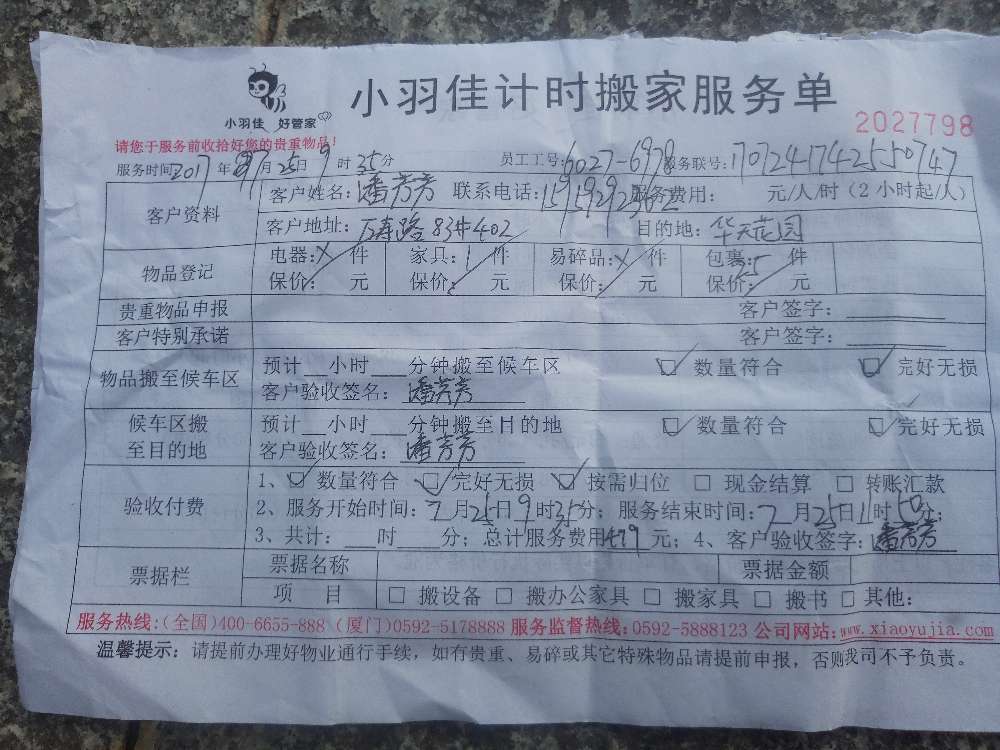 小羽佳计时搬家服务单
小羽佳 好管家
2027798
请您于服务前收拾好您的贵重物品!
服务时间2017年7月25日9时35分 员工工号:6027-6978 服务联号:170724174255 0747
客户资料 客户姓名:潘芳芳 联系电话: 服务费用: 元/人/时(2小时起/人)
客户地址:万寿路83#402 目的地:华天花园
物品登记 电器:X件 家具:1件 易碎品:X件 包裹:5件
保价: 元 保价: 元 保价: 元 保价: 元
贵重物品申报 客户签字:
客户特别承诺 客户签字:
物品搬至候车区 预计__小时___分钟搬至候车区 ☑数量符合 ☑完好无损
客户验收签名:潘芳芳
候车区搬至目的地 预计__小时___分钟搬至目的地 ☑数量符合 ☑完好无损
客户验收签名:潘芳芳
验收付费 1、☑数量符合 ☑完好无损 ☑按需归位 □现金结算 □转账汇款
2、服务开始时间:7月25日9时35分;服务结束时间:7月25日11时50分;
3、共计:___时____分;总计服务费用479元;4、客户验收签字:潘芳芳
票据栏 票据名称 票据金额
项 目 □搬设备 □搬办公家具 □搬家具 □搬书 □其他:
服务热线:(全国)400-6655-888 (厦门)0592-5178888 服务监督热线:0592-5888123 公司网站:www.xiaoyujia.com
温馨提示:请提前办理好物业通行手续,如有贵重、易碎或其它特殊物品请提前申报,否则我司不予负责。